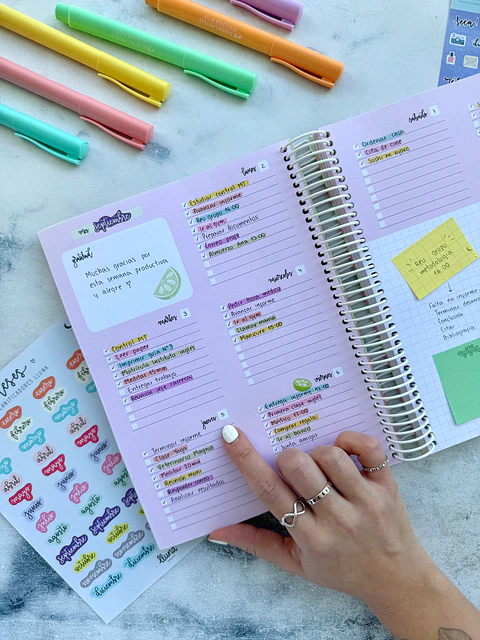 mes: septiembre
gratitud
Muchas gracias por
esta semana productiva
y alegre ♡
lunes 2
Estudiar control MT
Avanzar informe
Reu grupo 16:00
Ir al gym
Preparar documentos
Correo profe
Almuerzo Ana 13:00
martes 3
Control MT
Leer paper
Imprimir guía N°3
Matrícula instituto inglés
Meditar 15 min
Entregar trabajo
Reunión jefe carrera
miércoles 4
Pedir hora médico
Avanzar informe
Ir al gym
Llamar mamá
Manicure 15:00
jueves 5
Terminar informe
Clase yoga
Veterinario Magnus
Meditar 10 min
Analizar resultados
viernes 6
Entrega informe 12:00
Primera clase inglés
Médico 17:00
Comprar regalo
Ir al banco
Junta amigos
sábado 7
Ordenar casa
Cita de cine
Reu grupo
metodología
16:00
Falta en informe
Citar
Bibliografía
meses
enero
febrero
marzo
abril
mayo
junio
julio
agosto
septiembre
octubre
noviembre
diciembre